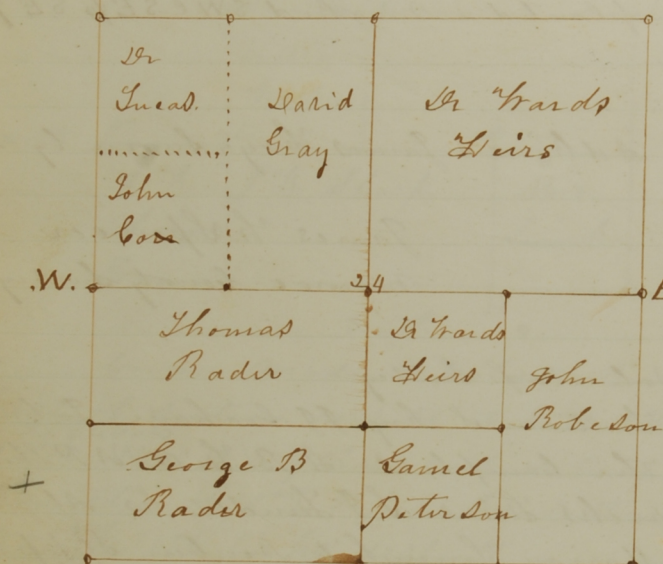 Dr
Lucas.
John
David
Gray
Dr Wards
Heirs
.W.
24
Thomas
Rader
Dr Wards
Heirs
John
Robeson
George B
Rader
Gamel
Peterson